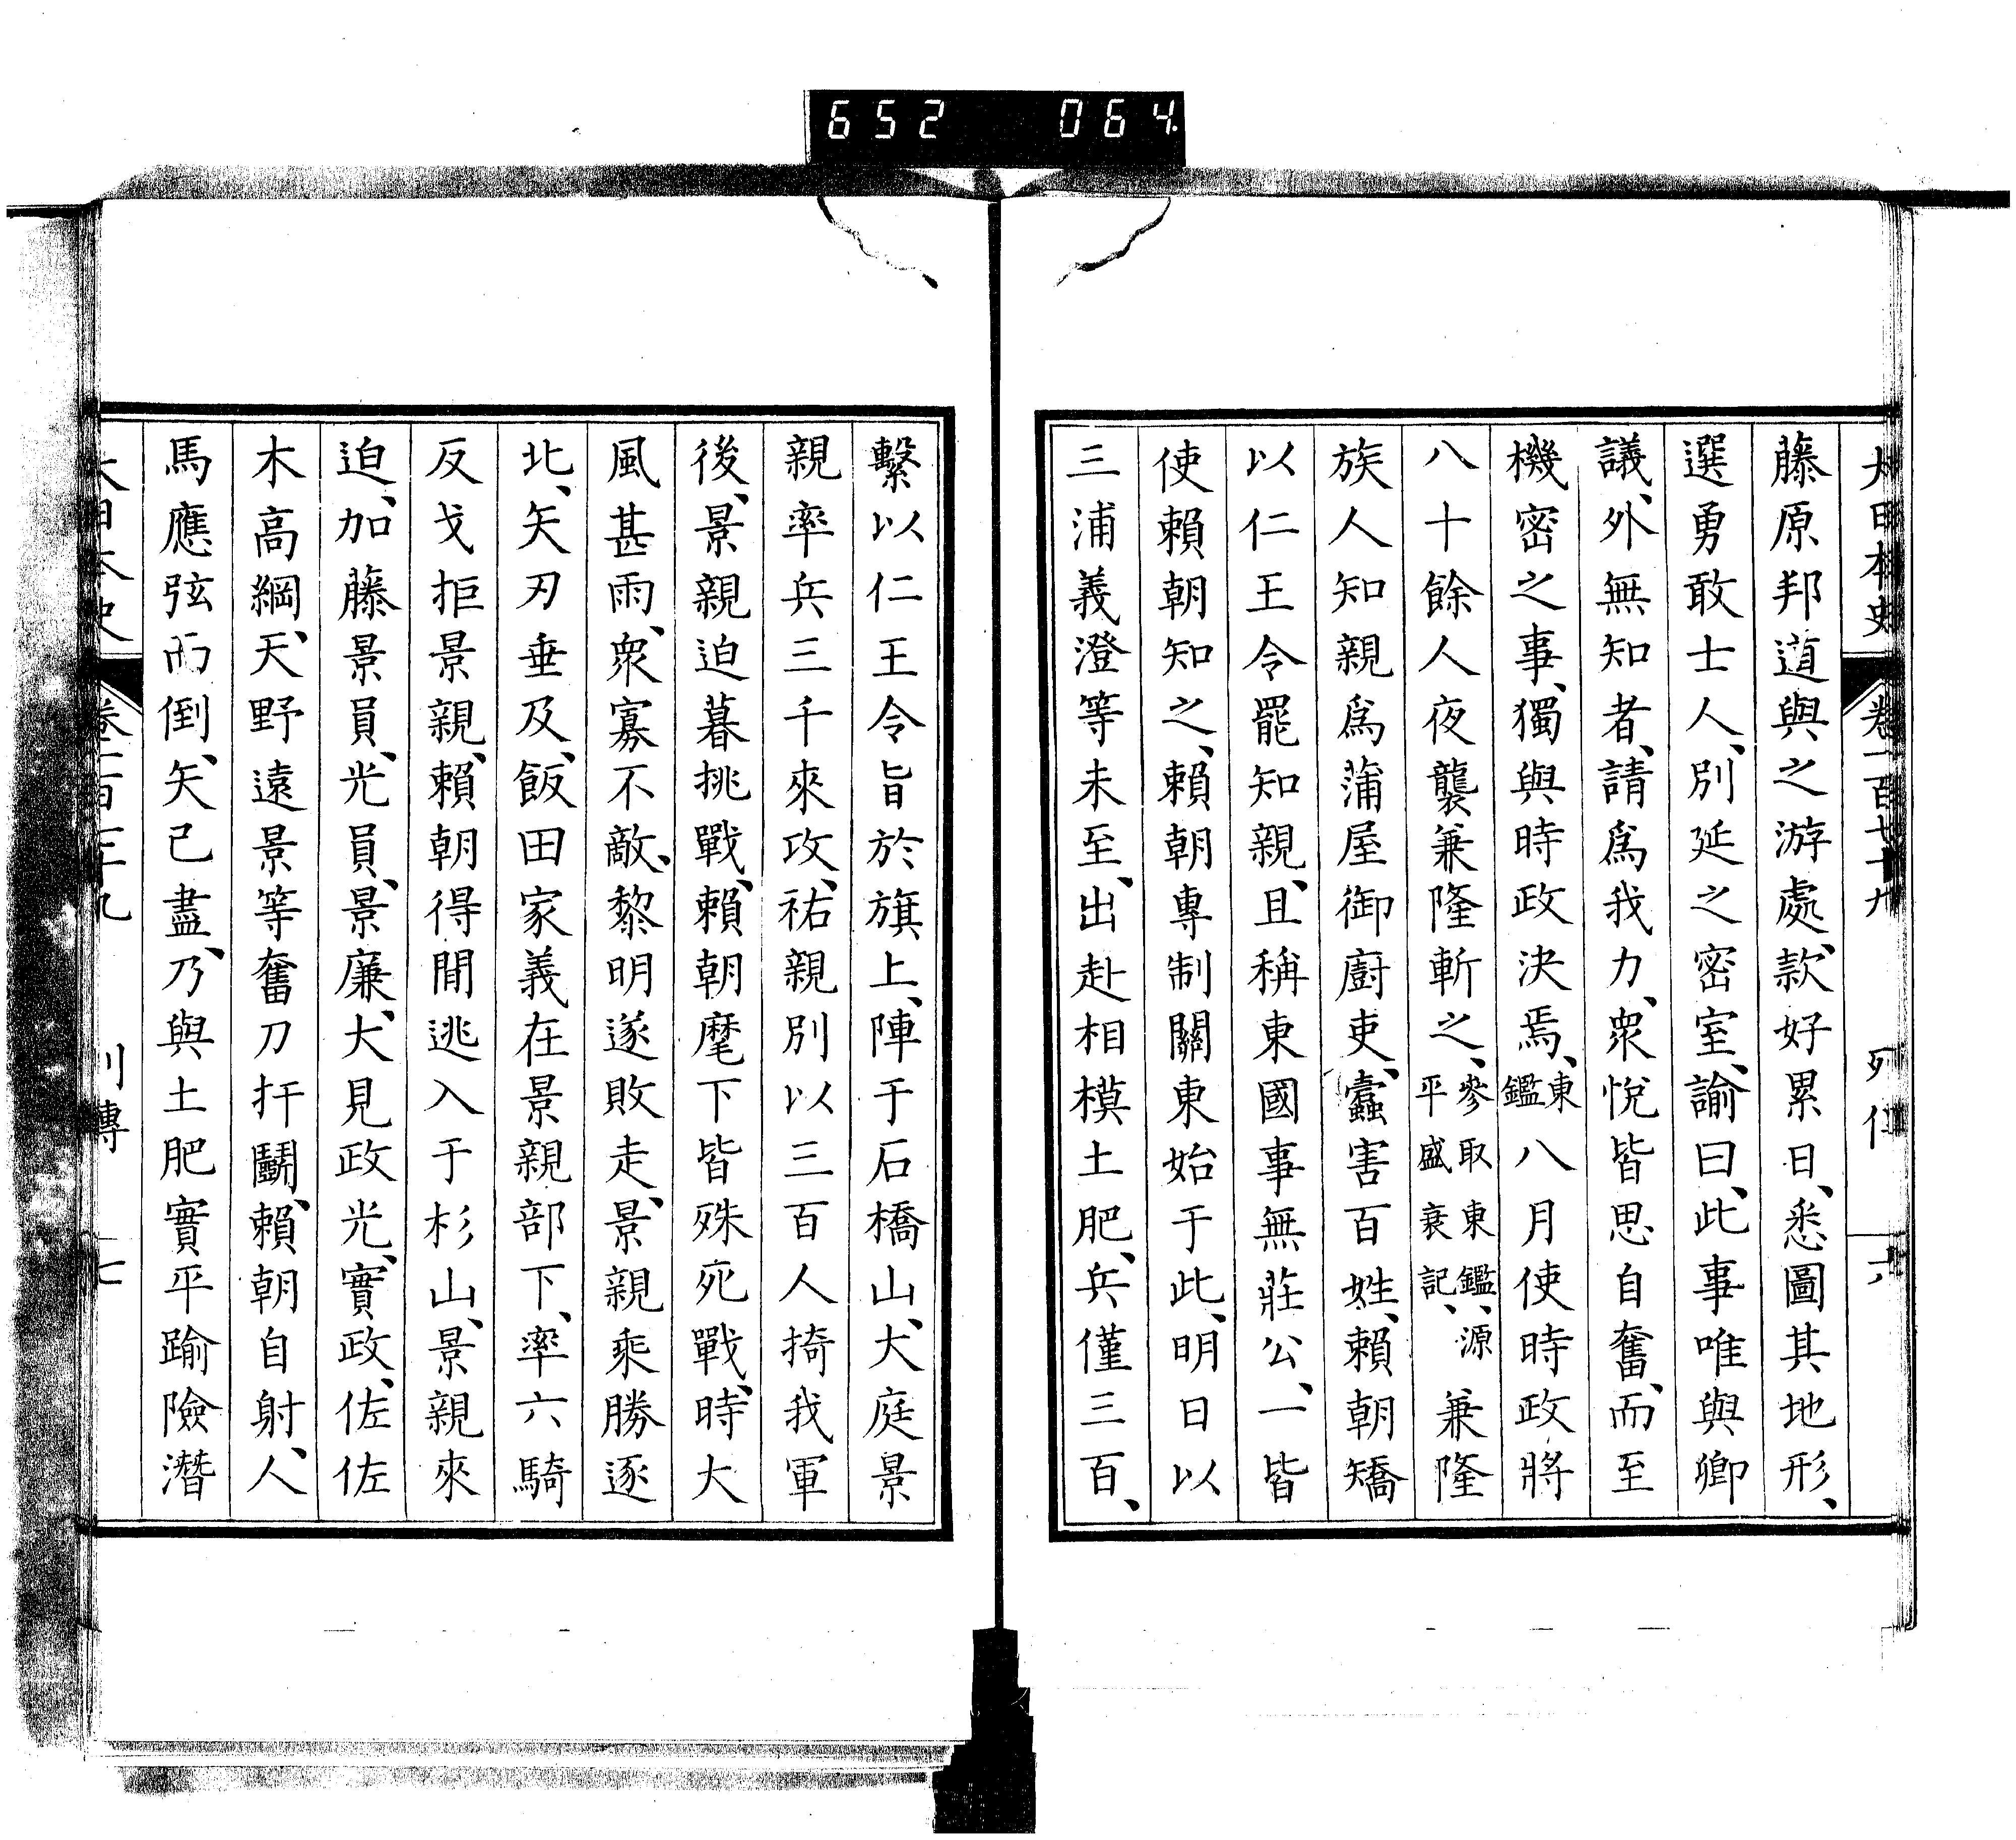 652 064
大日本史 卷一百七十九 列傳 六
藤原邦道與之游處、款好累日、悉圖其地形、
選勇敢士人、別延之密室、諭曰、此事唯與卿
議、外無知者、請爲我力、衆悅皆思自奮、而至
機密之事、獨與時政決焉、東鑑八月使時政將
八十餘人夜襲兼隆斬之、參取東鑑、源平盛衰記、兼隆
族人知親爲蒲屋御廚吏、蠹害百姓、賴朝矯
以仁王令罷知親、且稱東國事無莊公、一皆
使賴朝知之、賴朝專制關東始于此、明日以
三浦義澄等未至、出赴相模土肥、兵僅三百、
繫以仁王令旨於旗上、陣于石橋山、大庭景
親率兵三千來攻、祐親別以三百人掎我軍
後、景親迫暮挑戰、賴朝麾下皆殊死戰、時大
風甚雨、衆寡不敵、黎明遂敗走、景親乘勝逐
北、矢刃垂及、飯田家義在景親部下、率六騎
反戈拒景親、賴朝得間逃入于杉山、景親來
迫、加藤景員、光員、景廉、大見政光、實政、佐佐
木高綱、天野遠景等奮刀扞鬭、賴朝自射、人
馬應弦而倒、矢已盡、乃與土肥實平踰險潛
大日本史 卷一百七十九 列傳 七